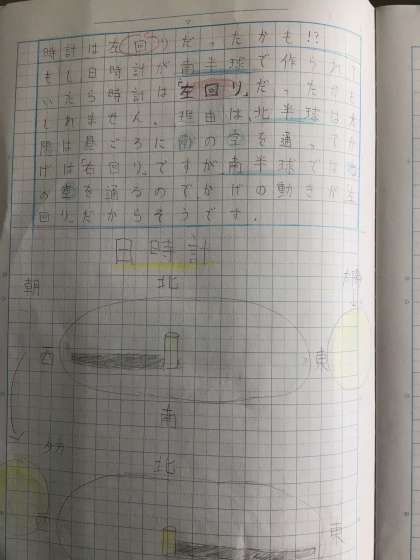 時計は左回りだったかも!?
もし日時計が南半球で作られて
いたら時計は「左回り」だったかも
しれません。理由は、北半球は太
陽は昼ごろに南の空を通ってか
げは「右回り」ですが、南半球では北
の空を通るのでかげの動きが左
回り」だからそうです。
日時計
朝
北
太陽
西
東
南
夕方
北
西
東